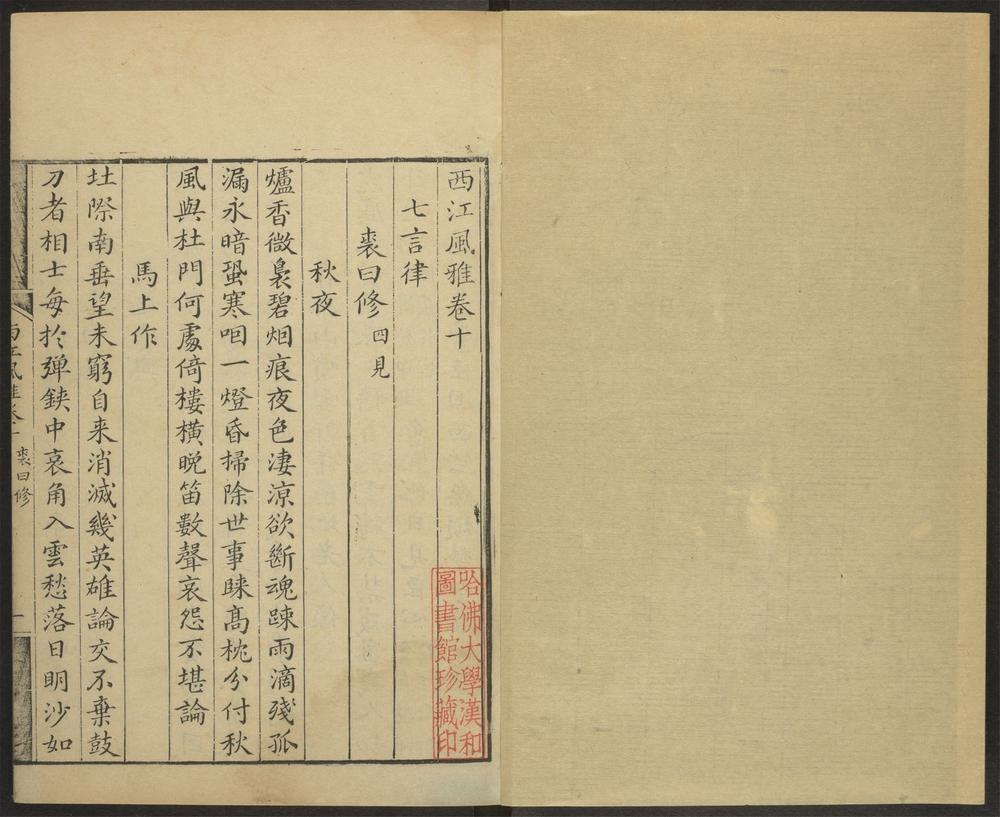 西江風雅卷十
七言律
裘曰修 四見
秋夜
爐香微裊碧烟痕夜色凄涼欲斷魂踈雨滴殘孤
漏永暗蛩寒咽一燈昏掃除世事睐髙枕分付秋
風與杜門何處倚樓橫晩笛數聲哀怨不堪論
馬上作
圵際南垂望未窮自来消滅幾英雄論交不棄鼓
刀者相士每於彈鋏中哀角入雲愁落日明沙如
西江風雅卷十 裘曰修 一
哈佛大學漢和
圖書館珍藏印